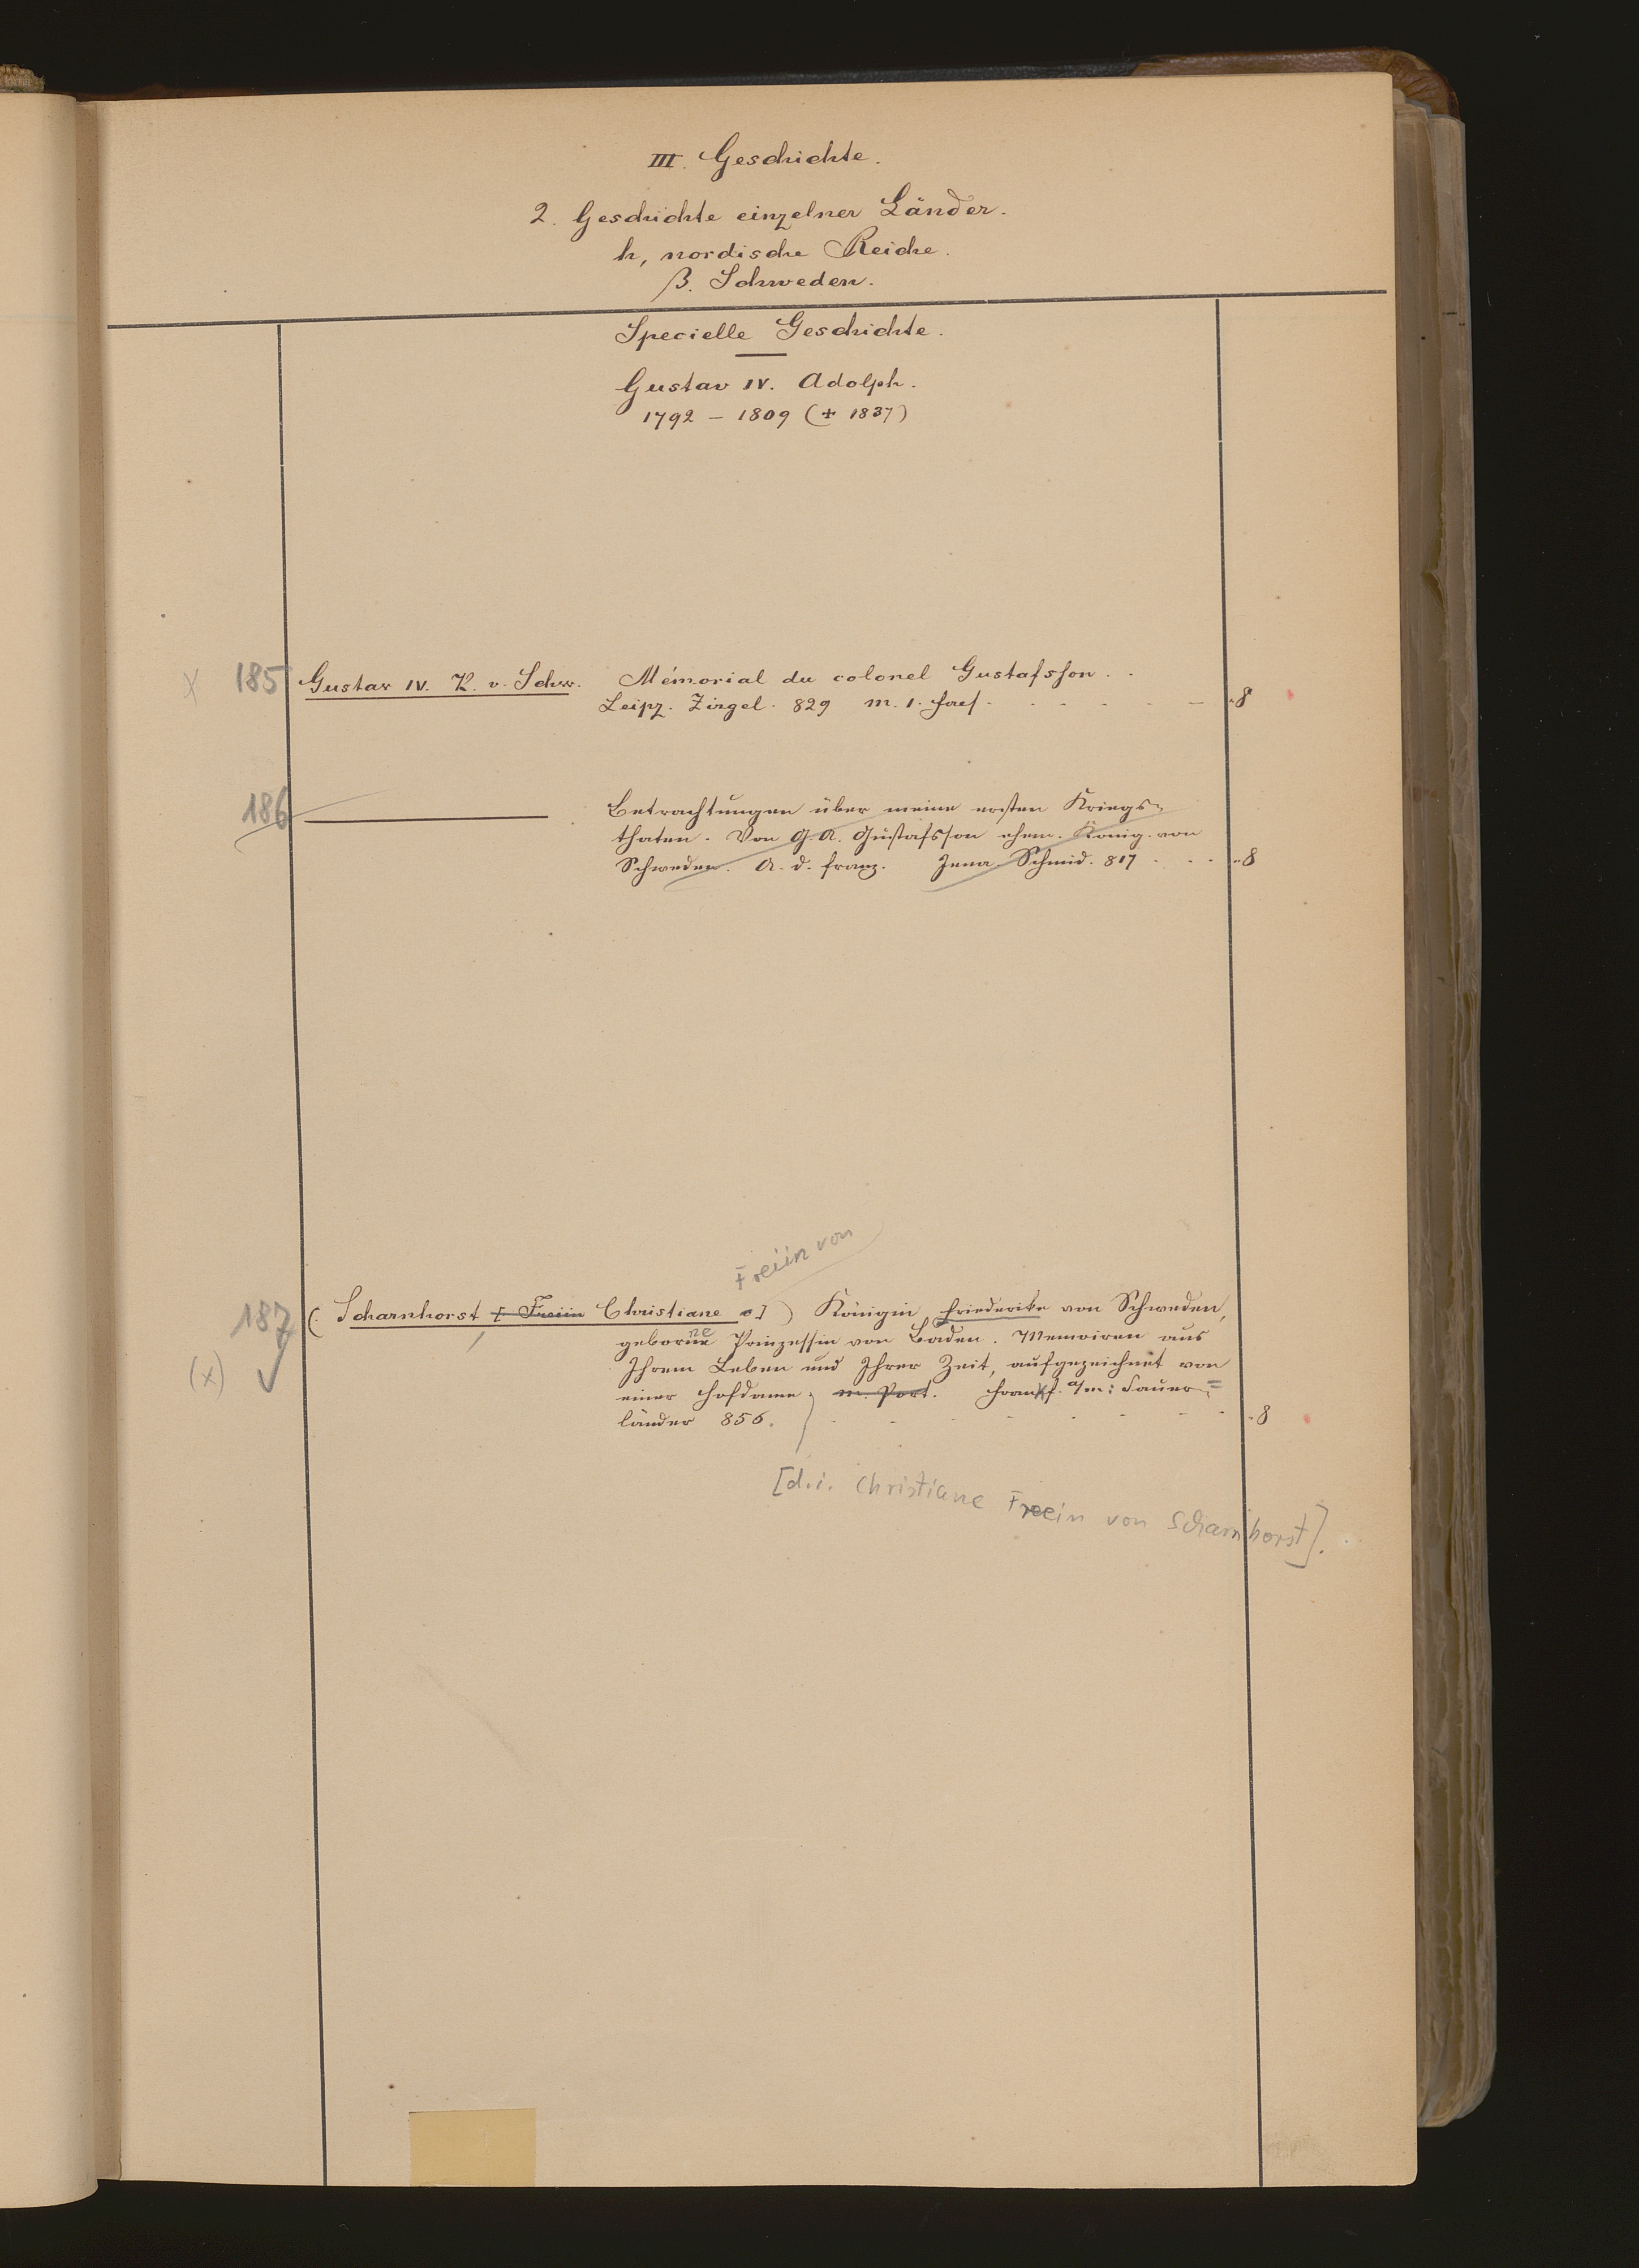 III. Geschichte.
2. Geschichte einzelner Länder.
h, nordische Reiche.
β. Schweden.
Specielle Geschichte.
Gustav IV. Adolph.
1792 – 1809 († 1837)
X 185 Gustav IV. K. v. Schw. Mémorial du colonel Gustafsson . .
Leipz. Zirgel. 829 m. 1. Facs. . . . . . – 8
186 Betrachtungen über meine ersten Kriegs-
thaten. Von G. A. Gustafsson ehem. König von
Schweden. A. d. Franz. Jena. Schmid. 817 . . . 8
Freiin von
187 (Scharnhorst [Freiin Christiane v.]) Königin Friederike von Schweden,
geborne Prinzessin von Baden. Memoiren aus
(x) Ihrem Leben und Ihrer Zeit, aufgezeichnet von
einer Hofdame; m. Port. Frankf. a/m: Sauer=
länder 856. . . . . . . . 8
[d.i. Christiane Freein von Scharnhorst].